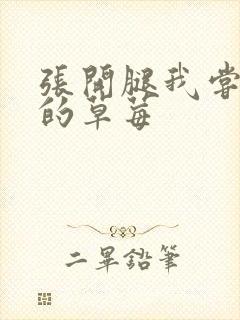 張開腿我嘗
的草莓
二畢鉛筆